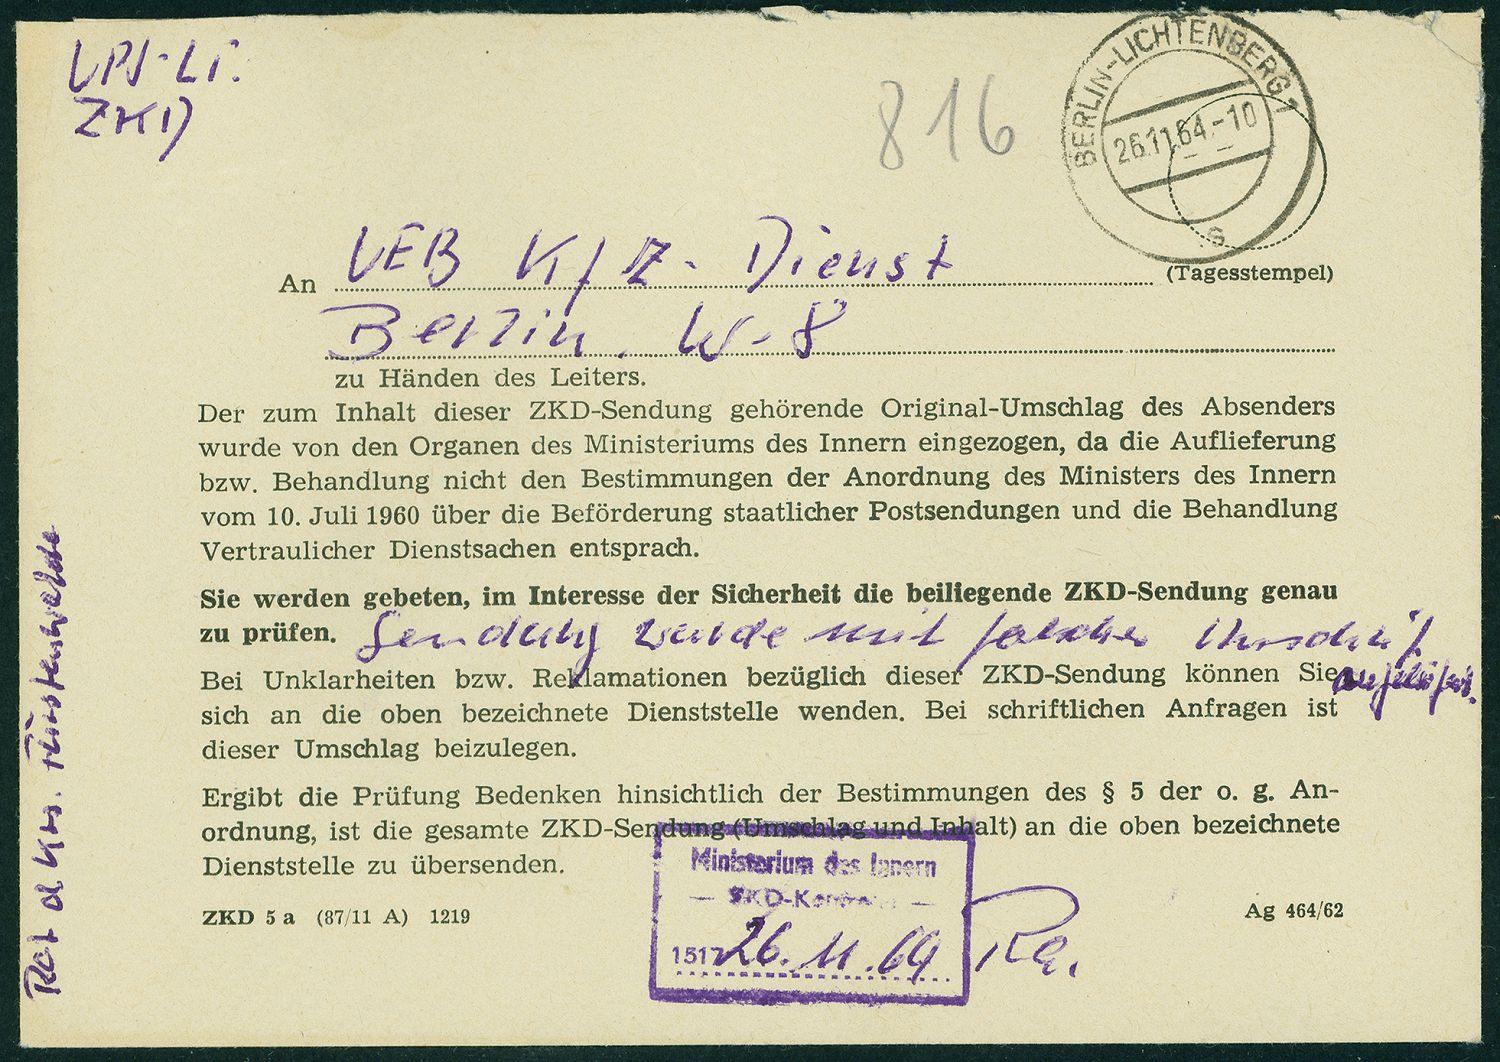 VPI-LI.
ZKD
816
BERLIN-LICHTENBERG 1
26.11.64.-10
(Tagesstempel)
An VEB Kfz-Dienst
Berlin. W-8
zu Händen des Leiters.
Der zum Inhalt dieser ZKD-Sendung gehörende Original-Umschlag des Absenders
wurde von den Organen des Ministeriums des Innern eingezogen, da die Auflieferung
bzw. Behandlung nicht den Bestimmungen der Anordnung des Ministers des Innern
vom 10. Juli 1960 über die Beförderung staatlicher Postsendungen und die Behandlung
Vertraulicher Dienstsachen entsprach.
Sie werden gebeten, im Interesse der Sicherheit die beiliegende ZKD-Sendung genau
zu prüfen. Sendung wurde mit falscher Anschrift
aufgeliefert.
Bei Unklarheiten bzw. Reklamationen bezüglich dieser ZKD-Sendung können Sie
sich an die oben bezeichnete Dienststelle wenden. Bei schriftlichen Anfragen ist
dieser Umschlag beizulegen.
Ergibt die Prüfung Bedenken hinsichtlich der Bestimmungen des § 5 der o. g. An-
ordnung, ist die gesamte ZKD-Sendung (Umschlag und Inhalt) an die oben bezeichnete
Dienststelle zu übersenden.
Ministerium des Innern
— ZKD-Kontrolle —
1517 26. 11. 64 Ra.
ZKD 5 a (87/11 A) 1219
Ag 464/62
Rat d. Krs. Fürstenwalde